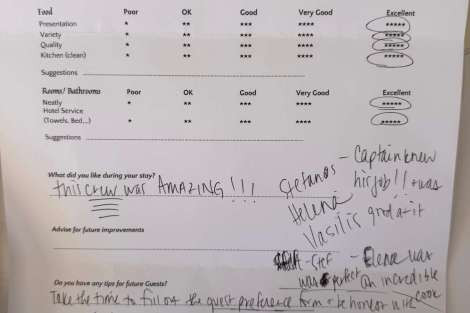 Food Poor OK Good Very Good Excellent
Presentation * ** *** **** *****
Variety * ** *** **** *****
Quality * ** *** **** *****
Kitchen (clean) * ** *** **** *****
Suggestions
Rooms/ Bathrooms Poor OK Good Very Good Excellent
Neatly * ** *** **** *****
Hotel Service
(Towels, Bed...) * ** *** **** *****
Suggestions
What did you like during your stay?
this crew was AMAZING!!!
Stefanos - Captain knew
his job!! + was
good at it
Helena
Vasilis
Advise for future improvements
- Elena was
was perfect an incredible
cook
Do you have any tips for future Guests?
Take the time to fill out the guest preference form + be honest with